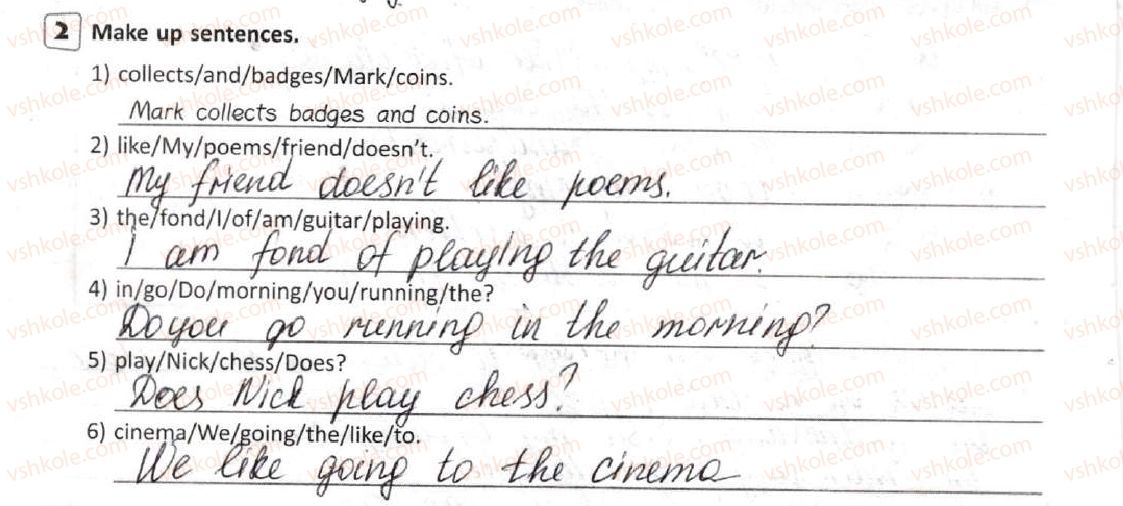 2 Make up sentences.
1) collects/and/badges/Mark/coins.
Mark collects badges and coins.
2) like/My/poems/friend/doesn't.
My friend doesn't like poems.
3) the/fond/I/of/am/guitar/playing.
I am fond of playing the guitar.
4) in/go/Do/morning/you/running/the?
Do you go running in the morning?
5) play/Nick/chess/Does?
Does Nick play chess?
6) cinema/We/going/the/like/to.
We like going to the cinema
vshkole.com